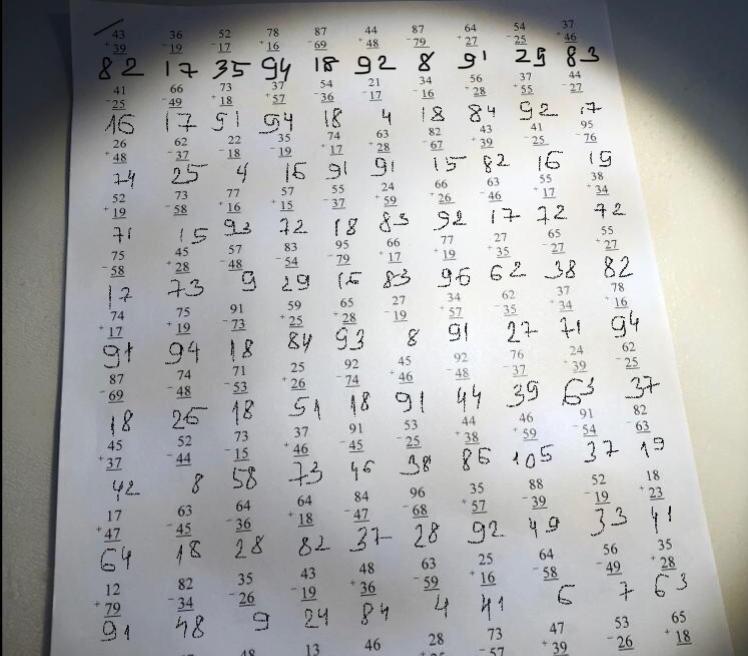 43 36 52 78 87 44 87 64 54 37
+39 -19 -17 +16 -69 +48 -79 +27 -25 +46
82 17 35 94 18 92 8 91 29 83
41 66 73 37 54 21 34 56 37 44
-25 -49 +18 +57 -36 -17 -16 +28 +55 -27
16 17 91 94 18 4 18 84 92 17
26 62 22 35 74 63 82 43 41 95
+48 -37 -18 -19 +17 +28 -67 +39 -25 -76
74 25 4 16 91 91 15 82 16 19
52 73 77 57 55 24 66 63 55 38
+19 -58 +16 +15 -37 +59 +26 -46 +17 +34
71 15 93 72 18 83 92 17 72 72
75 45 57 83 95 66 77 27 65 55
-58 +28 -48 -54 -79 +17 +19 +35 -27 +27
17 73 9 29 16 83 96 62 38 82
74 75 91 59 65 27 34 62 37 78
+17 +19 -73 +25 +28 -19 +57 -35 +34 +16
91 94 18 84 93 8 91 27 71 94
87 74 71 25 92 45 92 76 24 62
-69 -48 -53 +26 -74 +46 -48 -37 +39 -25
18 26 18 51 18 91 44 39 63 37
45 52 73 37 91 53 44 46 91 82
+37 -44 -15 +46 -45 -25 +38 +59 -54 -63
42 8 58 73 46 38 86 105 37 19
17 63 64 64 84 96 35 88 52 18
+47 -45 -36 +18 -47 -68 +57 -39 -19 +23
64 18 28 82 37 28 92 49 33 41
12 82 35 43 48 63 25 64 56 35
+79 -34 -26 -19 +36 -59 +16 -58 -49 +28
91 48 9 24 84 4 41 6 7 63
48 13 46 28 73 47 53 65
-57 +39 -26 +18